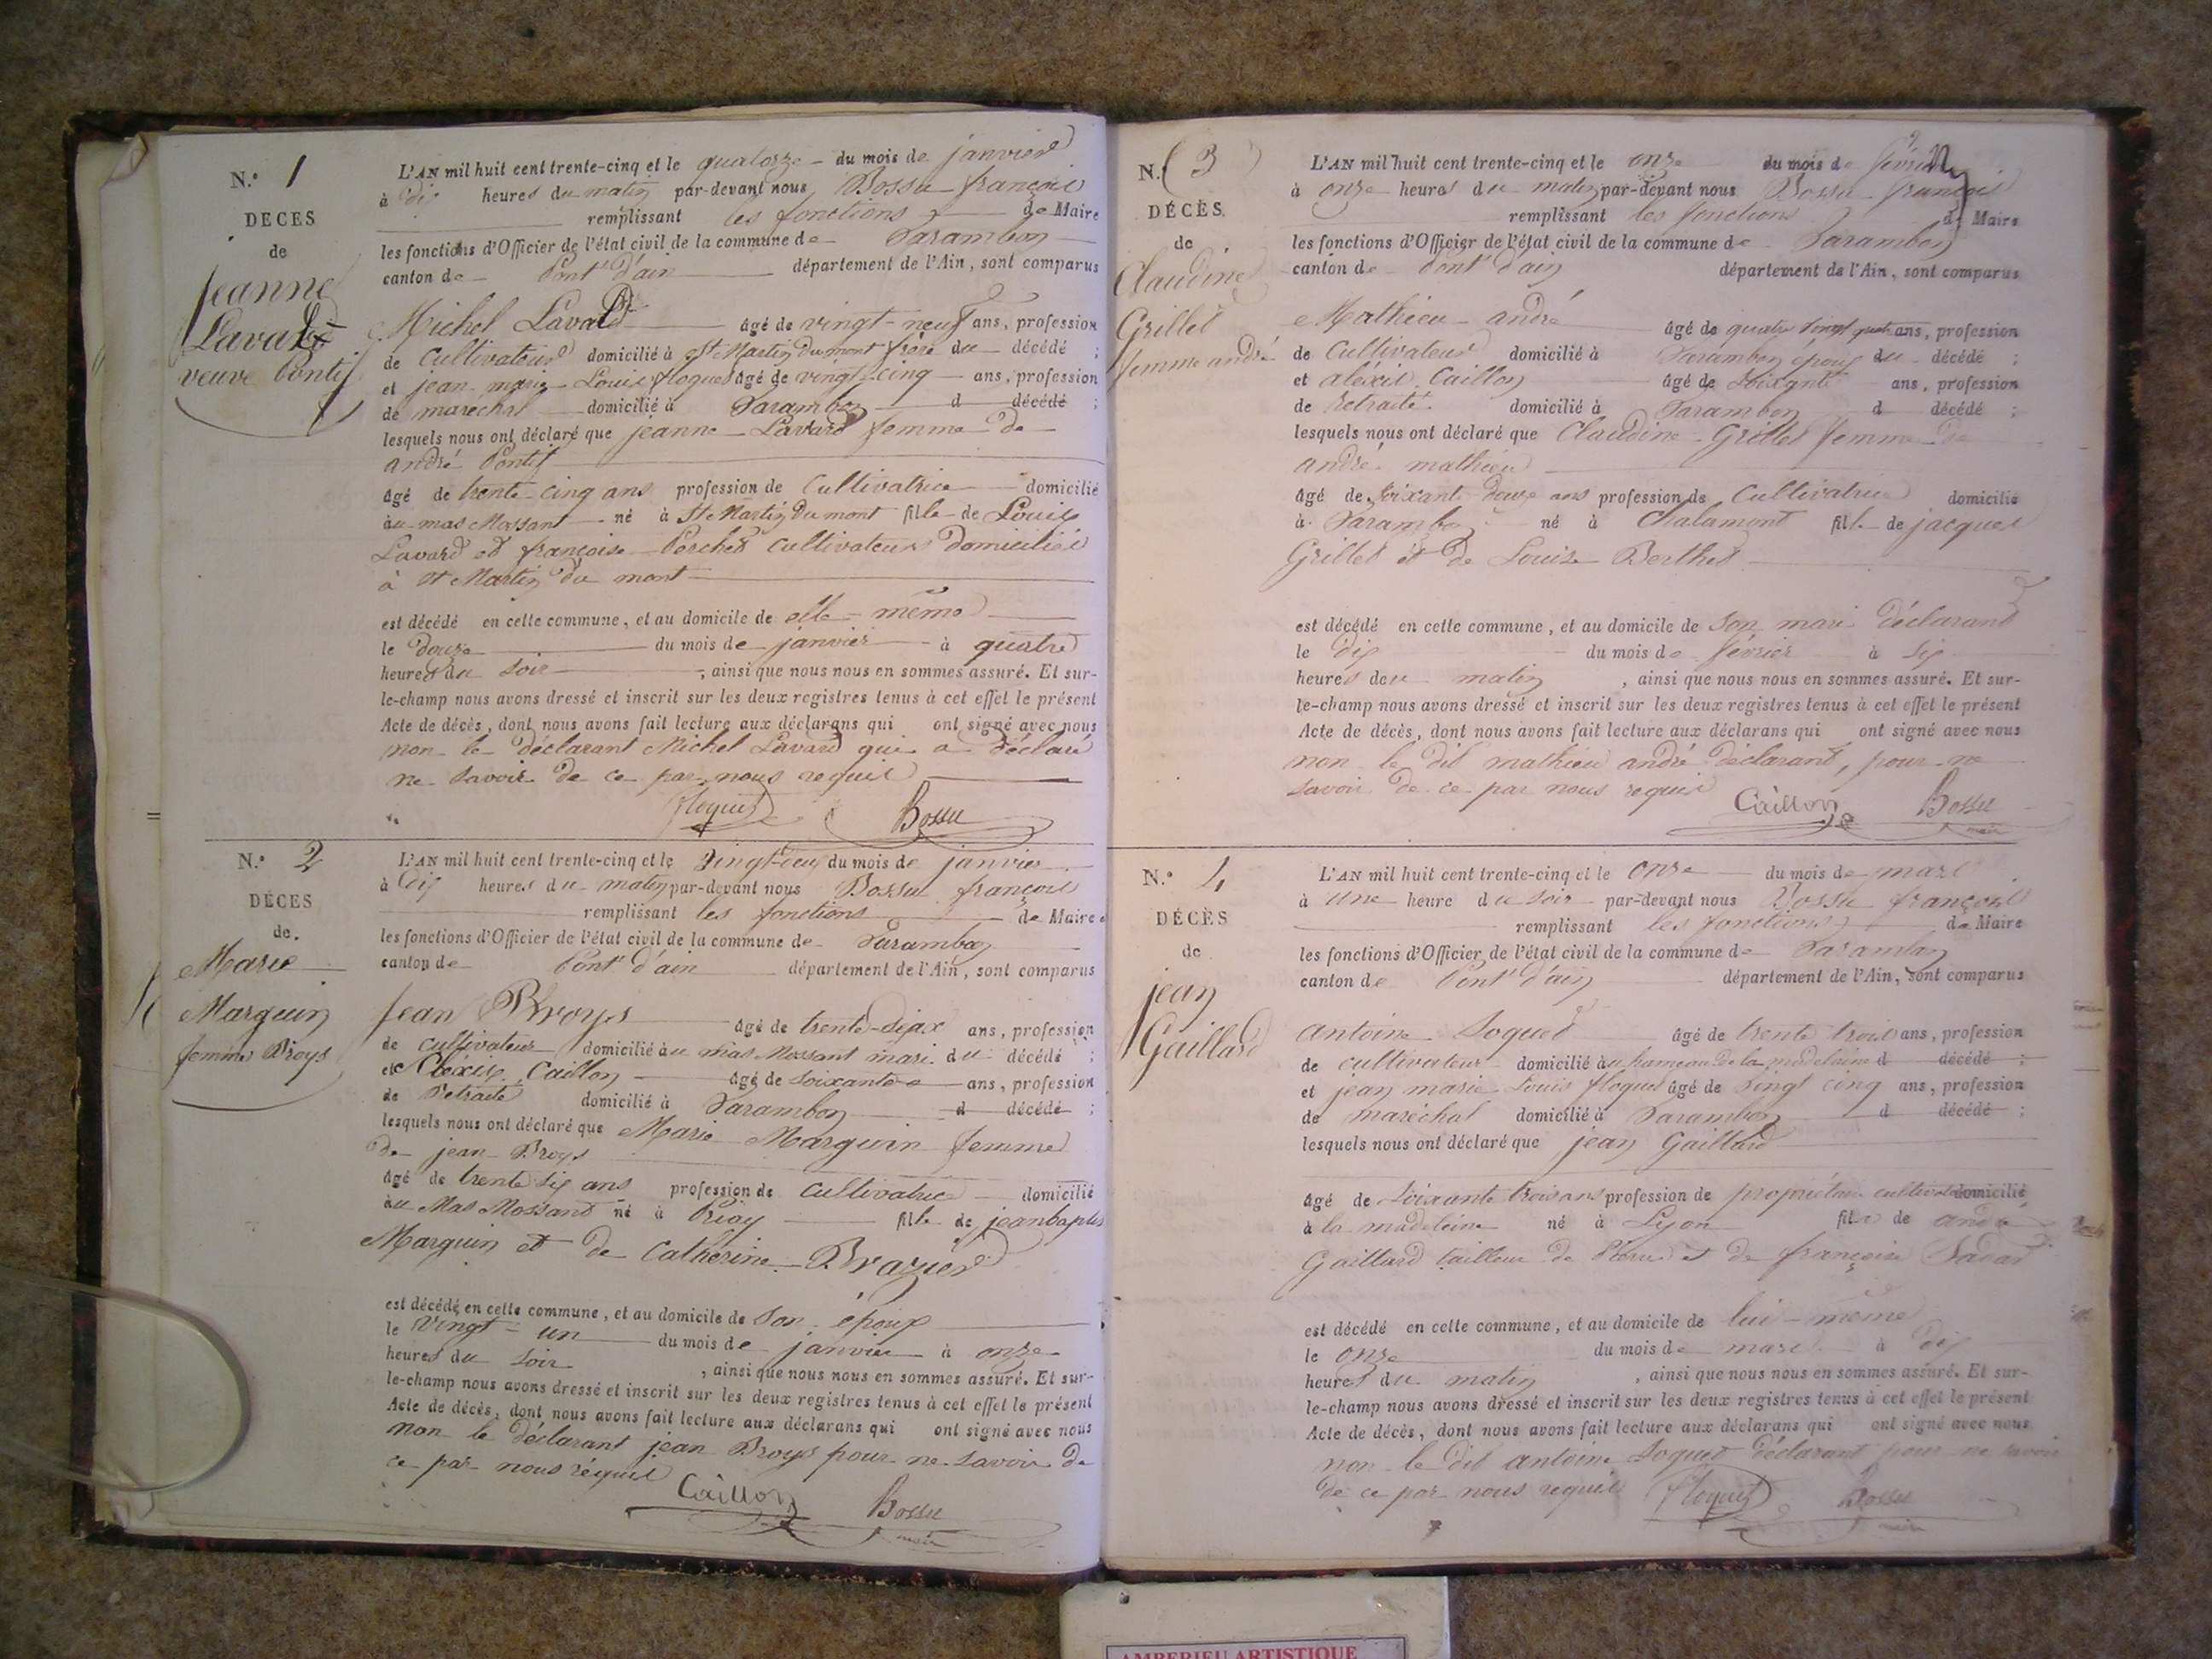 N.º 1
DECES
de
Jeanne
Lavard
veuve Pontif
L'AN mil huit cent trente-cinq et le quatorze du mois de janvier
à dix heures du matin par-devant nous Bossu françois
remplissant les fonctions de Maire
les fonctions d'Officier de l'état civil de la commune de Varambon
canton de Pont d'ain département de l'Ain, sont comparus
Michel Lavard âgé de vingt-neuf ans, profession
de cultivateur domicilié à St Martin du mont frère du décédé ;
et jean marie Louis floquet âgé de vingt-cinq ans, profession
de maréchal domicilié à Varambon d décédé ;
lesquels nous ont déclaré que jeanne Lavard femme de
andré Pontif
âgé de trente-cinq ans profession de Cultivatrice domicilié
au mas Mossant né à St Martin du mont fille de Louis
Lavard et françoise Perchet cultivateurs domiciliés
à St Martin du mont
est décédé en cette commune, et au domicile de elle-même
le douze du mois de janvier à quatre
heures du soir, ainsi que nous nous en sommes assuré. Et sur-
le-champ nous avons dressé et inscrit sur les deux registres tenus à cet effet le présent
Acte de décès, dont nous avons fait lecture aux déclarans qui ont signé avec nous
non le déclarant Michel Lavard qui a déclaré
ne savoir de ce par nous requis
floquet Bossu
N.º 2
DÉCES
de
Marie
Marguin
femme Broys
L'AN mil huit cent trente-cinq et le vingt-deux du mois de janvier
à dix heures du matin par-devant nous Bossu françois
remplissant les fonctions de Maire
les fonctions d'Officier de l'état civil de la commune de Varambon
canton de Pont d'ain département de l'Ain, sont comparus
Jean Broys âgé de trente-six ans, profession
de cultivateur domicilié au mas Mossant mari du décédé ;
et Aléxis Caillon âgé de soixante ans, profession
de Retraité domicilié à Varambon d décédé ;
lesquels nous ont déclaré que Marie Marguin femme
de jean Broys
âgé de trente six ans profession de cultivatrice domicilié
au Mas Mossand né à Priay fille de jean baptis
Marguin et de Catherine Brazier
est décédé en cette commune, et au domicile de son époux
le vingt-un du mois de janvier à onze
heures du soir, ainsi que nous nous en sommes assuré. Et sur-
le-champ nous avons dressé et inscrit sur les deux registres tenus à cet effet le présent
Acte de décès, dont nous avons fait lecture aux déclarans qui ont signé avec nous
non le déclarant jean Broys pour ne savoir de
ce par nous réquis
Caillon Bossu
maire
N. 3
DÉCÈS
de
Claudine
Grillet
femme andré
L'AN mil huit cent trente-cinq et le onze du mois de février
à onze heures du matin par-devant nous Bossu françois
remplissant les fonctions de Maire
les fonctions d'Officier de l'état civil de la commune de Varambon
canton de Pont d'ain département de l'Ain, sont comparus
Mathieu andré âgé de quatre vingt quatre ans, profession
de Cultivateur domicilié à Varambon époux du décédé ;
et aléxis Caillon âgé de soixante ans, profession
de Retraité domicilié à Varambon d décédé ;
lesquels nous ont déclaré que Claudine Grillet femme de
andré mathieu
âgé de soixante douze ans profession de Cultivatrice domicilié
à Varambon né à Chalamont fille de jacques
Grillet et de Louise Berthet
est décédé en cette commune, et au domicile de son mari déclarant
le dix du mois de février à six
heures du matin, ainsi que nous nous en sommes assuré. Et sur-
le-champ nous avons dressé et inscrit sur les deux registres tenus à cet effet le présent
Acte de décès, dont nous avons fait lecture aux déclarans qui ont signé avec nous
non le dit mathieu andré déclarant, pour ne
savoir de ce par nous requis
Caillon Bossu
maire
N.º 4
DÉCÈS
de
jean
Gaillard
L'AN mil huit cent trente-cinq et le onze du mois de mars
à une heure du soir par-devant nous Bossu françois
remplissant les fonctions de Maire
les fonctions d'Officier de l'état civil de la commune de Varambon
canton de Pont d'ain département de l'Ain, sont comparus
antoine Soquet âgé de trente trois ans, profession
de cultivateur domicilié au hameau de la madeleine d décédé ;
et jean marie Louis floquet âgé de vingt cinq ans, profession
de maréchal domicilié à Varambon d décédé ;
lesquels nous ont déclaré que jean Gaillard
âgé de soixante trois ans profession de propriétaire cultivateur domicilié
à la madeleine né à Lyon fils de andré
Gaillard tailleur de Pierre et de françoise
est décédé en cette commune, et au domicile de lui-même
le onze du mois de mars à dix
heures du matin, ainsi que nous nous en sommes assuré. Et sur-
le-champ nous avons dressé et inscrit sur les deux registres tenus à cet effet le présent
Acte de décès, dont nous avons fait lecture aux déclarans qui ont signé avec nous
non le dit antoine Soquet déclarant pour ne savoir
de ce par nous requis floquet Bossu
maire
AMBERIEU ARTISTIQUE